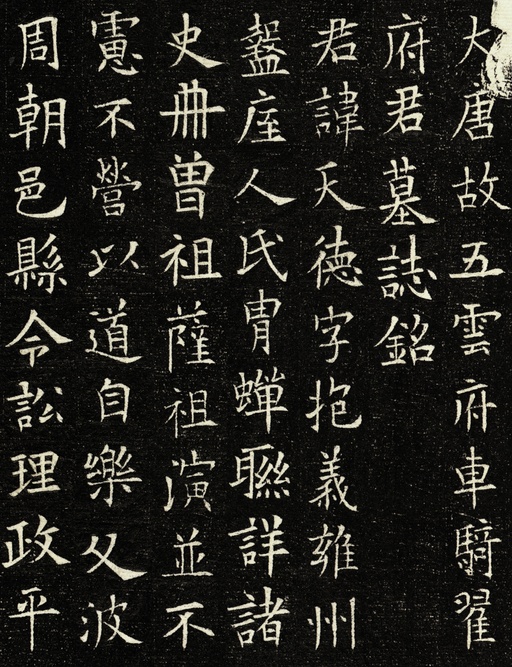 大唐故五雲府車騎翟
府君墓誌銘
君諱天德字抱義雍州
盩厔人氏胄蟬聯詳諸
史冊曾祖薩祖演並不
慮不營以道自樂父波
周朝邑縣令訟理政平